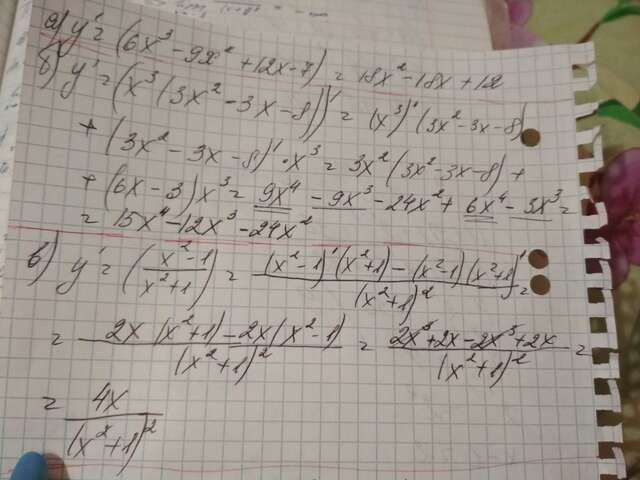 а) y' = (6x³ - 9x² + 12x - 7) = 18x² - 18x + 12
б) y' = (x³(3x² - 3x - 8))' = (x³)'(3x² - 3x - 8)
+ (3x² - 3x - 8)' · x³ = 3x²(3x² - 3x - 8) +
+ (6x - 3)x³ = 9x⁴ - 9x³ - 24x² + 6x⁴ - 3x³ =
= 15x⁴ - 12x³ - 24x²
в) y' = (x² - 1 / x² + 1)' = (x² - 1)'(x² + 1) - (x² - 1)(x² + 1)' / (x² + 1)² =
= 2x(x² + 1) - 2x(x² - 1) / (x² + 1)² = 2x³ + 2x - 2x³ + 2x / (x² + 1)² =
= 4x / (x² + 1)²